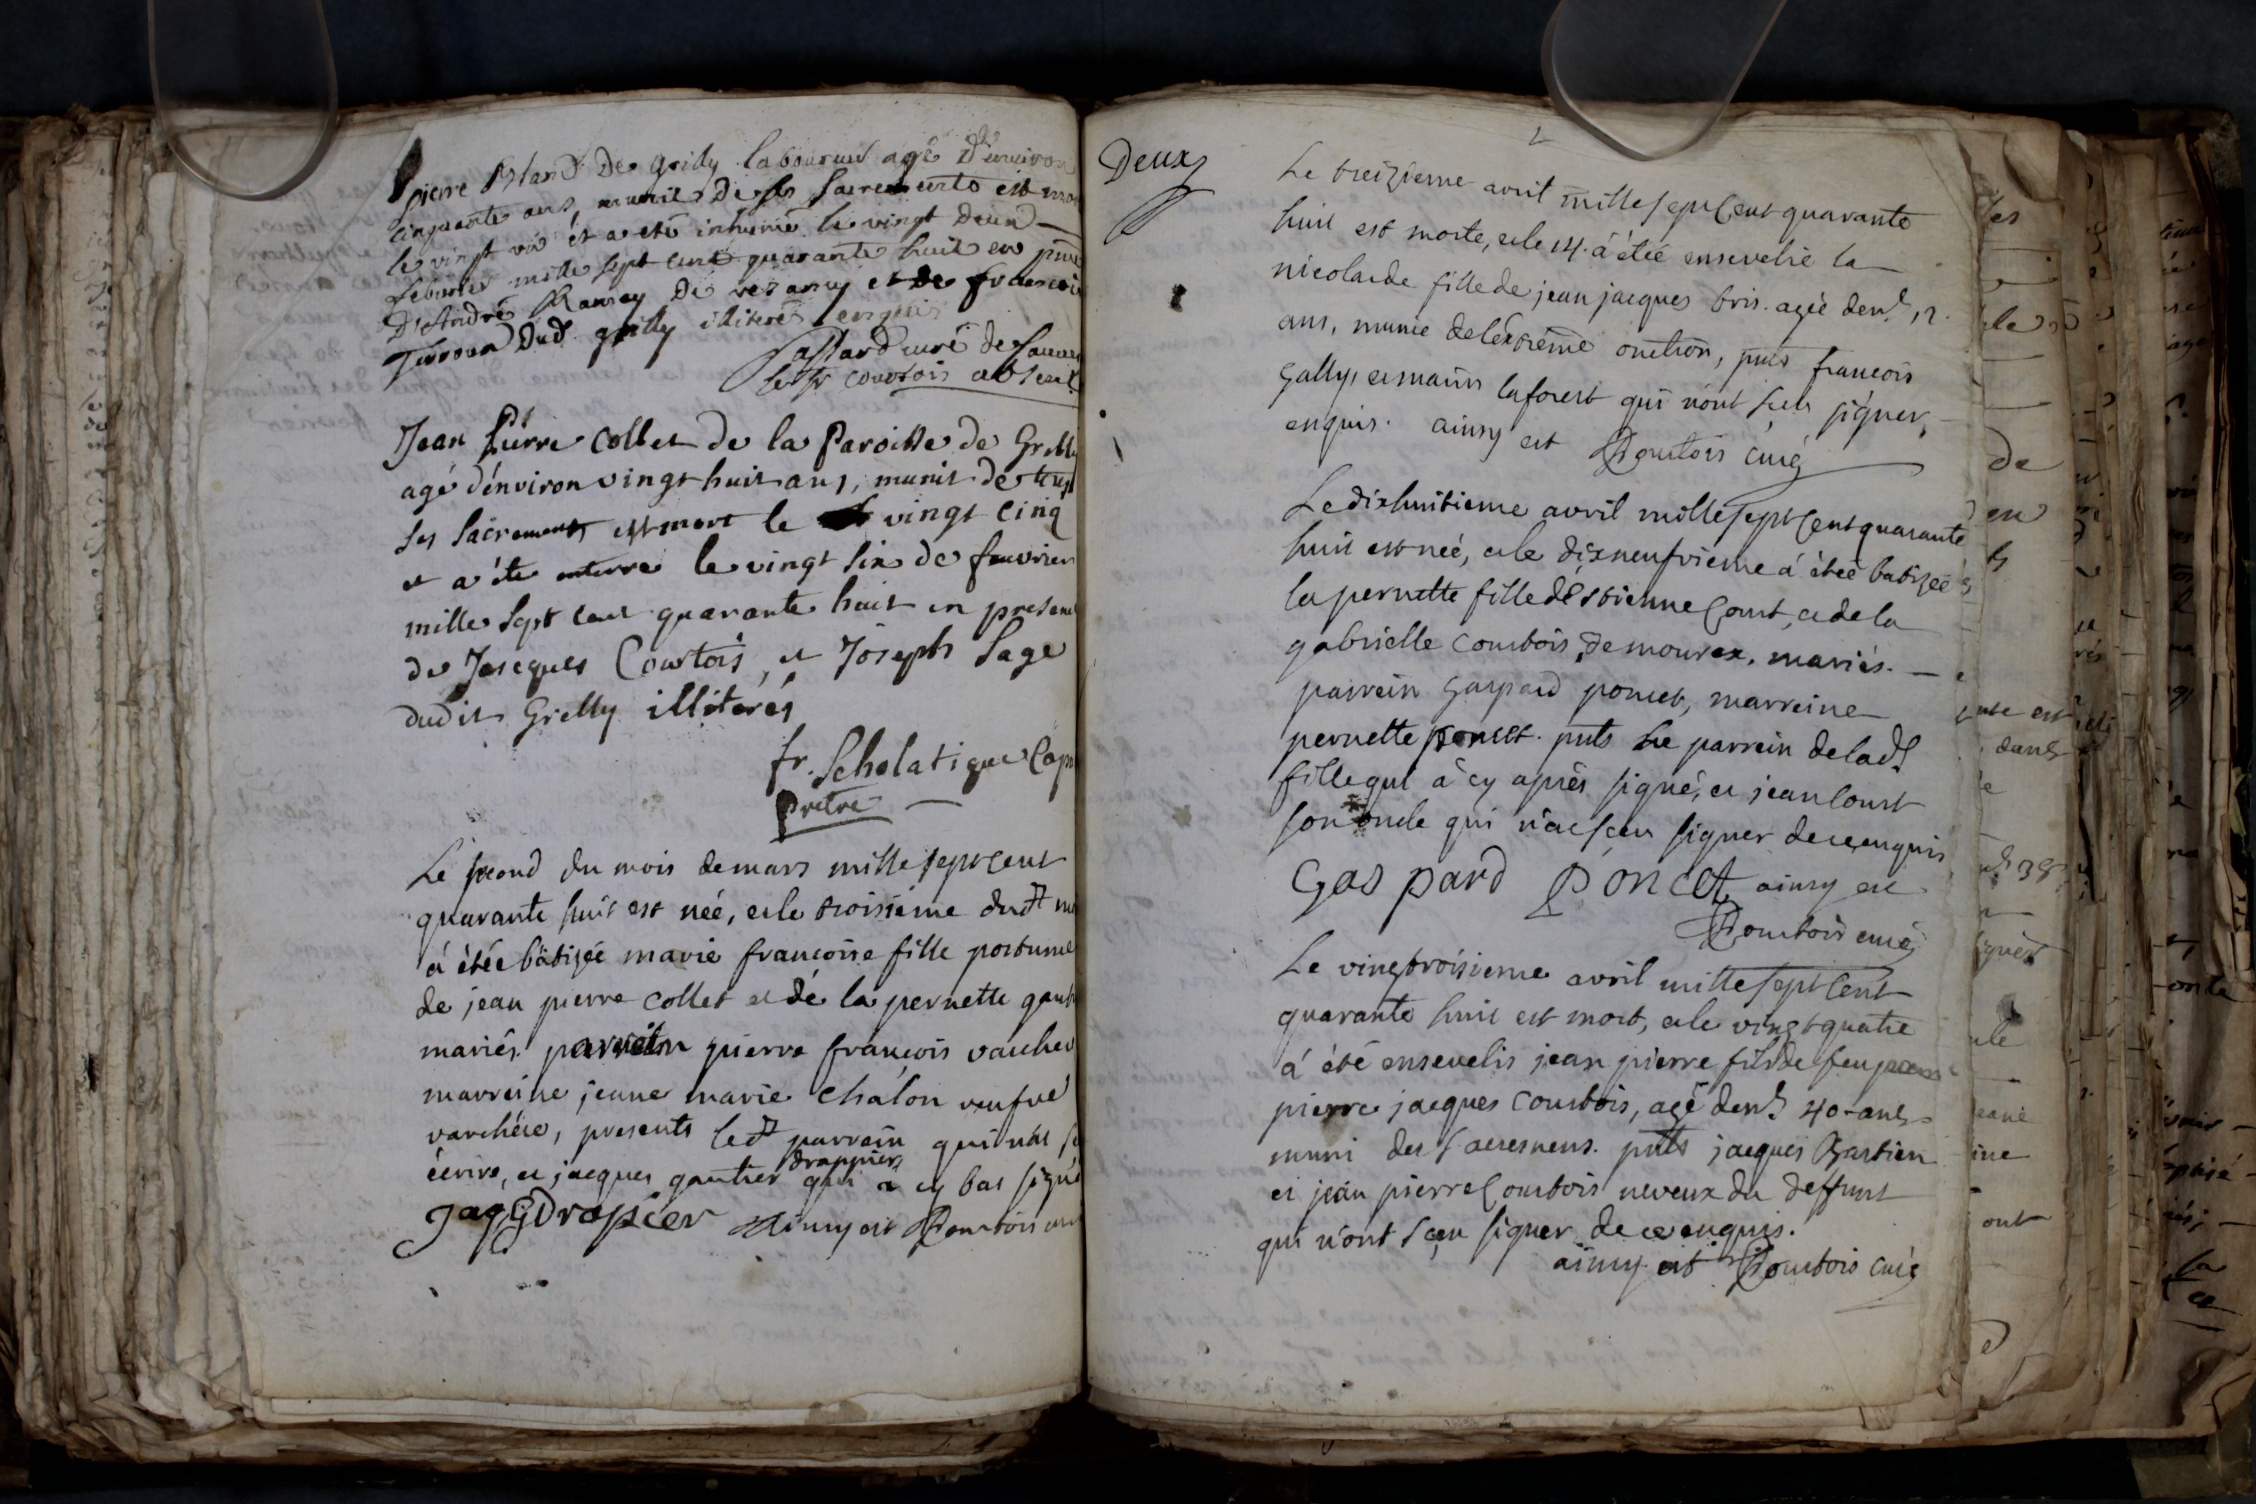 pierre De grilly laboureur agé D'environ
cinquante ans, munit De ses Sacrements est
le vingt et a eté inhumé le vingt Deux
mille sept cent quarante huit en
D'André Ramey De vezancy et de francois
Dud. grilly illiterés enquis
curé de
courtois absent
Jean Pierre Collet de la Paroisse de Grilly
agé d'environ vingt huit ans, munit de tous
ses Sacrements est mort le vingt cinq
et a été enterré le vingt six de feuvrier
mille Sept cent quarante huit en presence
de Jacques Courtois, et Joseph Sage
dudit Grilly illiterés
fr. Scholatique Cap
pretre
Le second du mois de mars mille sept cent
quarante huit est née, et le troisieme dudt
á étée bâtizée marie francoise fille postume
de jean pierre collet et de la pernette
mariés parrein pierre francois
marreine jeane marie chalon veufve
, presents ledt parrain qui
écrire, et jacques gautier drappier qui a cy bas signé
Jaq G Drapier Ainsy est Courtois
Deux
2
Le treizieme avril mille sept Cent quarante
huit est morte, et le 14. á étée ensevelie la
nicolarde fille de jean jacques bris. agée denv. 12.
ans, munie de lextreme onction, pnts francois
Gally, et laforest qui n'ont sceu signer,
enquis. ainsy est Courtois curé
Le dixhuitieme avril mille sept Cent quarante
huit est née, et le dixneufvieme á étée batizée
la pernette fille dEstienne Court, et de la
gabrielle Courtois, de mourex, mariés.
parrein Gaspard poncet, marreine
pernette poncet. pnts Le parrein de lad.
fille qui â cy aprês signé, et jean Court
son oncle qui n'a sçeu signer de ce enquis
Gaspard Poncet ainsy est
Courtois curé
Le vingtroisieme avril mille sept Cent
quarante huit est mort, et le vingtquatre
á été ensevelis jean pierre fils de feu
pierre jacques Courtois, agé denv. 40 ans
muni des Sacremens. pnts jacques Bastien
et jean pierre Courtois neveux du deffunt
qui n'ont sçeu signer de ce enquis.
ainsy est Courtois curé